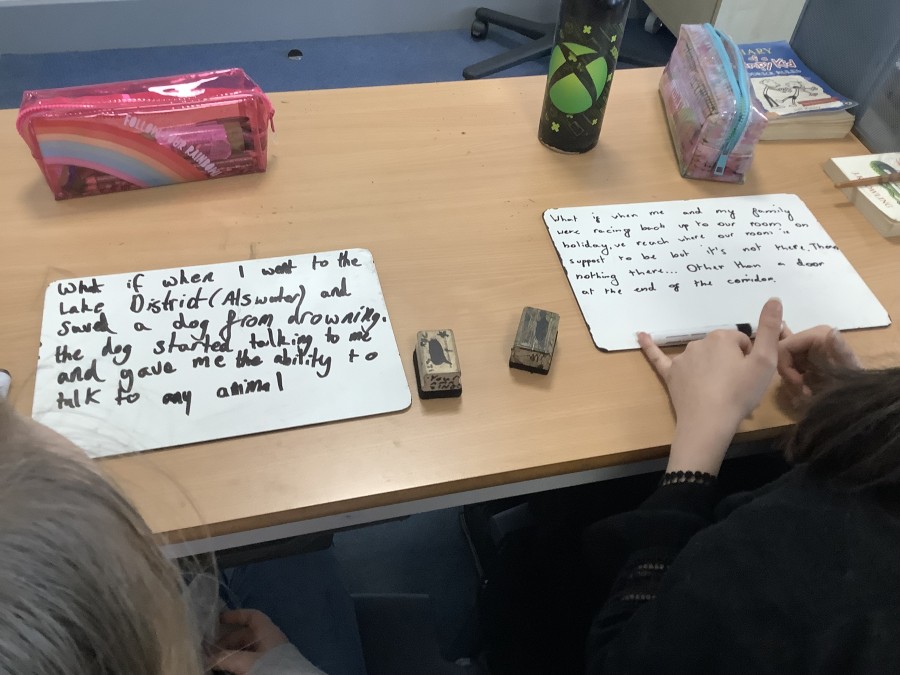 What if when I went to the
Lake District (Alswater) and
saved a dog from drowning.
the dog started talking to me
and gave me the ability to
talk to any animal
What if when me and my family
were racing back up to our room on
holiday, we reach where our room is
suppost to be but it's not there. Theres
nothing there... Other than a door
at the end of the corridor.
FOLLOW YOUR RAINBOW
DIARY
of a